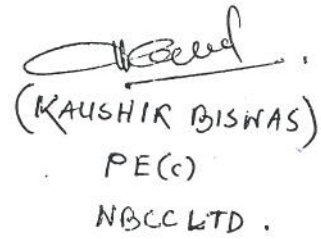 (KAUSHIK BISWAS)
PE(C)
NBCC LTD.